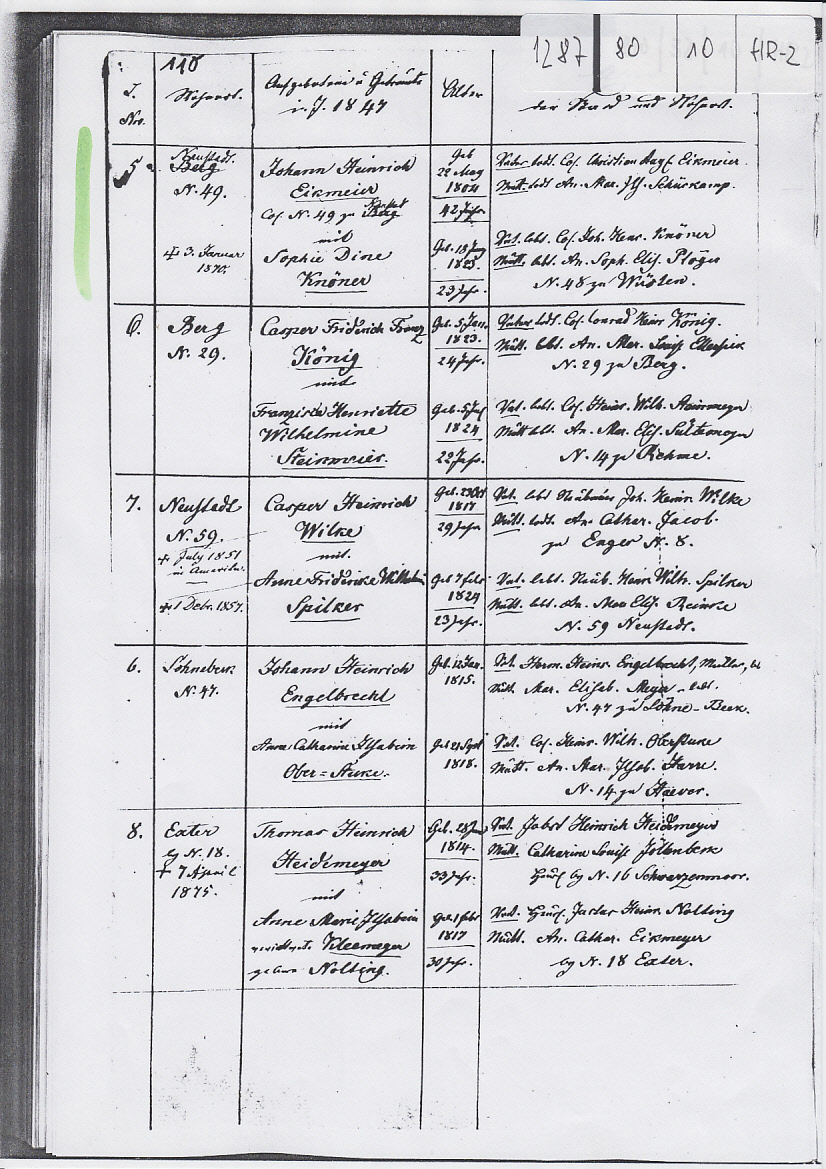 1287 80 10 HR-2
110
Wohnort.
Aufgebotene u Getraute
i. J. 1847
Alter
der Stand und Wohnort.
Nro.
5
Neustadt.
Berg
N. 49.
3. Januar
1870.
Johann Heinrich
Eikmeier
Col. N. 49 zu Berg
mit
Sophie Dine
Knöner
Geb
22 May
1804
42 Jahr.
1823.
23 Jahr.
Vater todt. Col. Christian Eikmeier
Mutt. todt An. Mar. Schürkamp.
Vat. lebt. Col. Joh. Henr. Knöner
Mutt. lebt. An. Soph. Elis. Plöger
N. 48 zu Wüsten.
6.
Berg
N. 29.
Casper Friderich Franz
König
mit
Franziska Henriette
Wilhelmine
Steinmeier.
Geb. 5 Jan.
1823.
24 Jahr.
1824
22 Jahr.
Vater todt. Col. Conrad Heinr König.
Mutt. lebt. An. Mar.
N. 29 zu Berg.
Vat. lebt. Col. Heinr. Wilh. Steinmeyer
Mutt lebt. An. Mar. Elis. Sültemeyer
N. 14 zu Rehme.
7.
Neustadt
N. 59.
July 1851
in Amerika.
1 Debr. 1857.
Casper Heinrich
Wilke
mit
Anne Friderike Wilhelm
Spilker
Geb. 23 Oct
1817
29 Jahr
Geb 7 febr
1824
23 Jahr.
Vat. lebt Joh. Heinr. Wilke
Mutt. todt. An Cathar. Jacob.
zu Enger N. 8.
Vat. lebt. Neub. Heinr. Wilh. Spilker
Mutt. lebt. An. Mar Elis. Reinke
N. 59 Neustadt.
6.
Löhnebeck
N. 47.
Johann Heinrich
Engelbrecht
mit
Anne Catharine Ilsabein
Ober=Stuke.
Geb. 12 Jan.
1815.
Geb 21 Sept
1818.
Vat. Herm. Heinr. Engelbrecht,
Mutt. Mar. Elisab. Meyer
N. 47 zu Löhne-Beck.
Vat. Col. Heinr. Wilh. Oberstuke
Mutt. An. Mar. Ilsab. Harre.
N. 14 zu Haever.
8.
Exter
by N. 18.
† 7 April
1875.
Thomas Heinrich
Heidemeyer
mit
Anne Marie Ilsabein
verwittwet. Kleemeyer
geborne Nolting.
1814.
33 Jahr.
Geb. 1 febr
1817
30 Jahr.
Vat. Jobst Heinrich Heidemeyer
Mutt. Catharine Louise Jöllenbeck
by N. 16 Schwarzenmoor.
Vat. Heinr. Nolting
Mutt. An. Cathar. Eikmeyer
by N. 18 Exter.